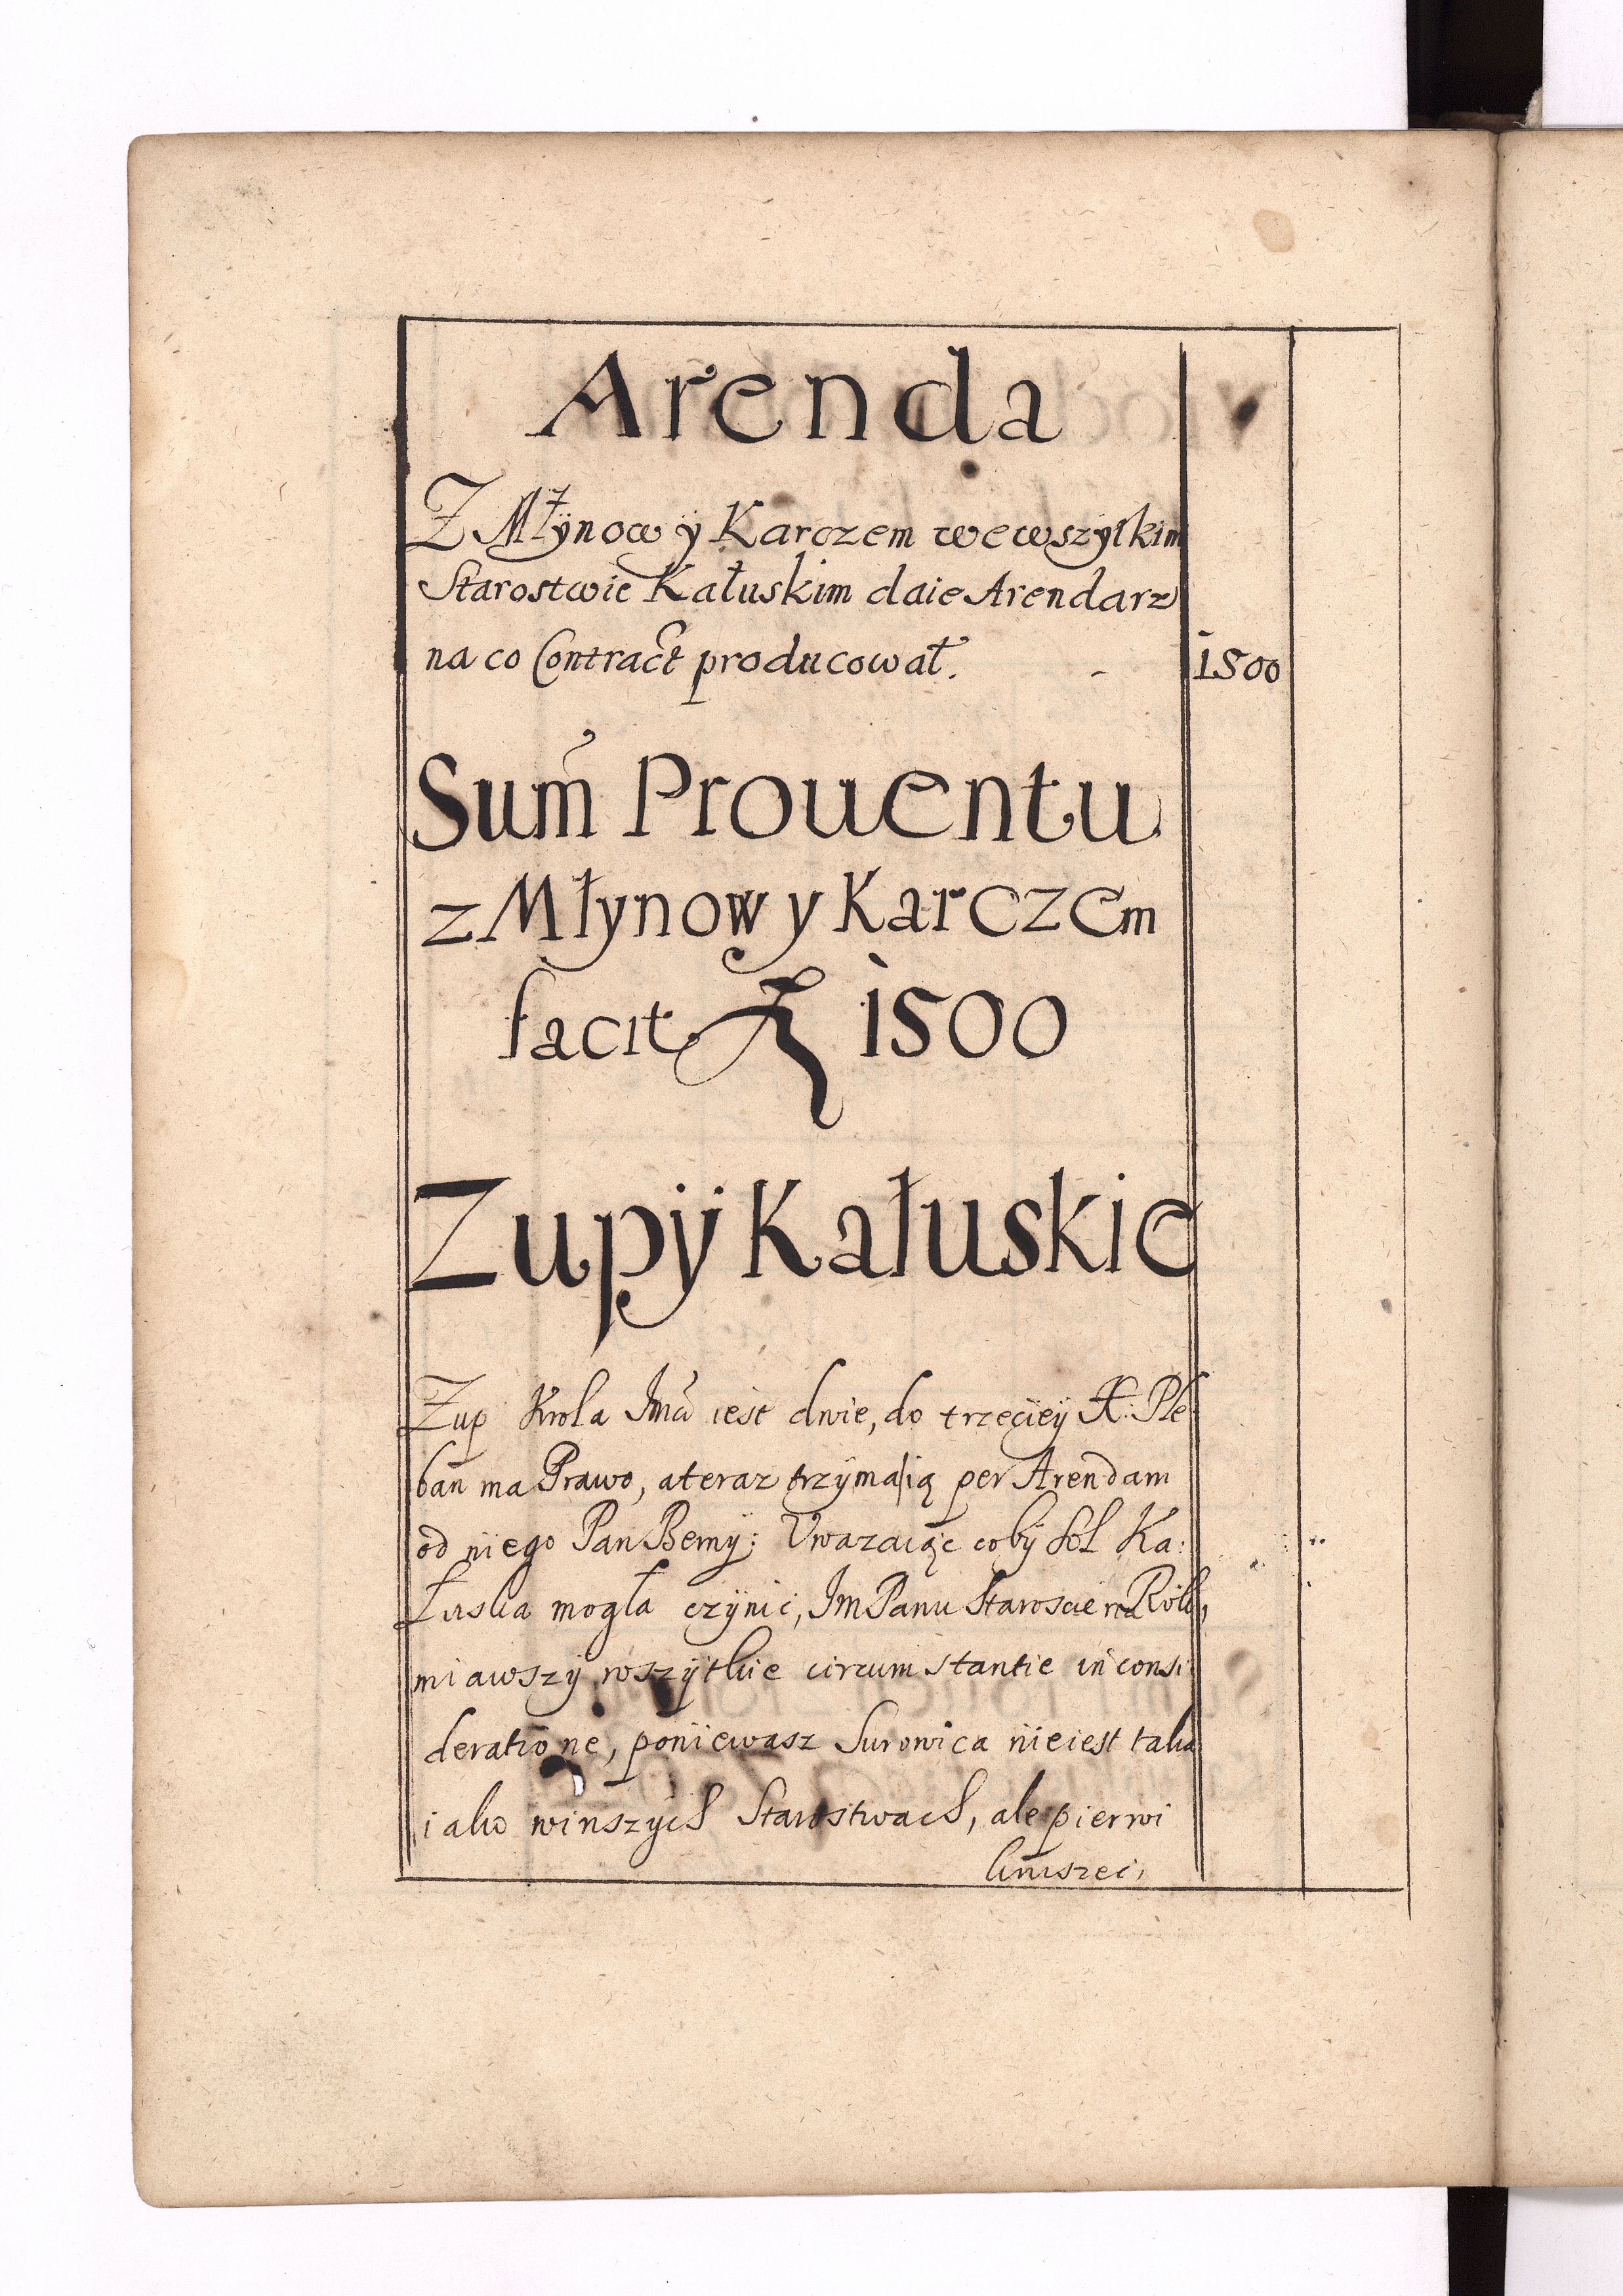 Arenda
Z Młÿnow ÿ Karczem wewszytkim
Starostwie Kałuskim daie Arendarz
na co Contract producował. - 1500
Sum̃ Prouentu
z Młynow y Karczem
facit 1500
Zupÿ Kałuskie
Zup Krola Jmci iest dwie, do trzeciey X: Ple
ban ma Prawo, a teraz trzÿmaią per Arendam
od niego Pan Bemÿ; Uwazaiąc cobÿ Sol Ka:
łuska mogła czÿnic, Jm Panu Staroscie na Rok,
miawszÿ wszÿtkie circumstantie in consi
deratione, poniewasz Surowica nieiest taka
iako winszÿch Starostwach, ale pierwi